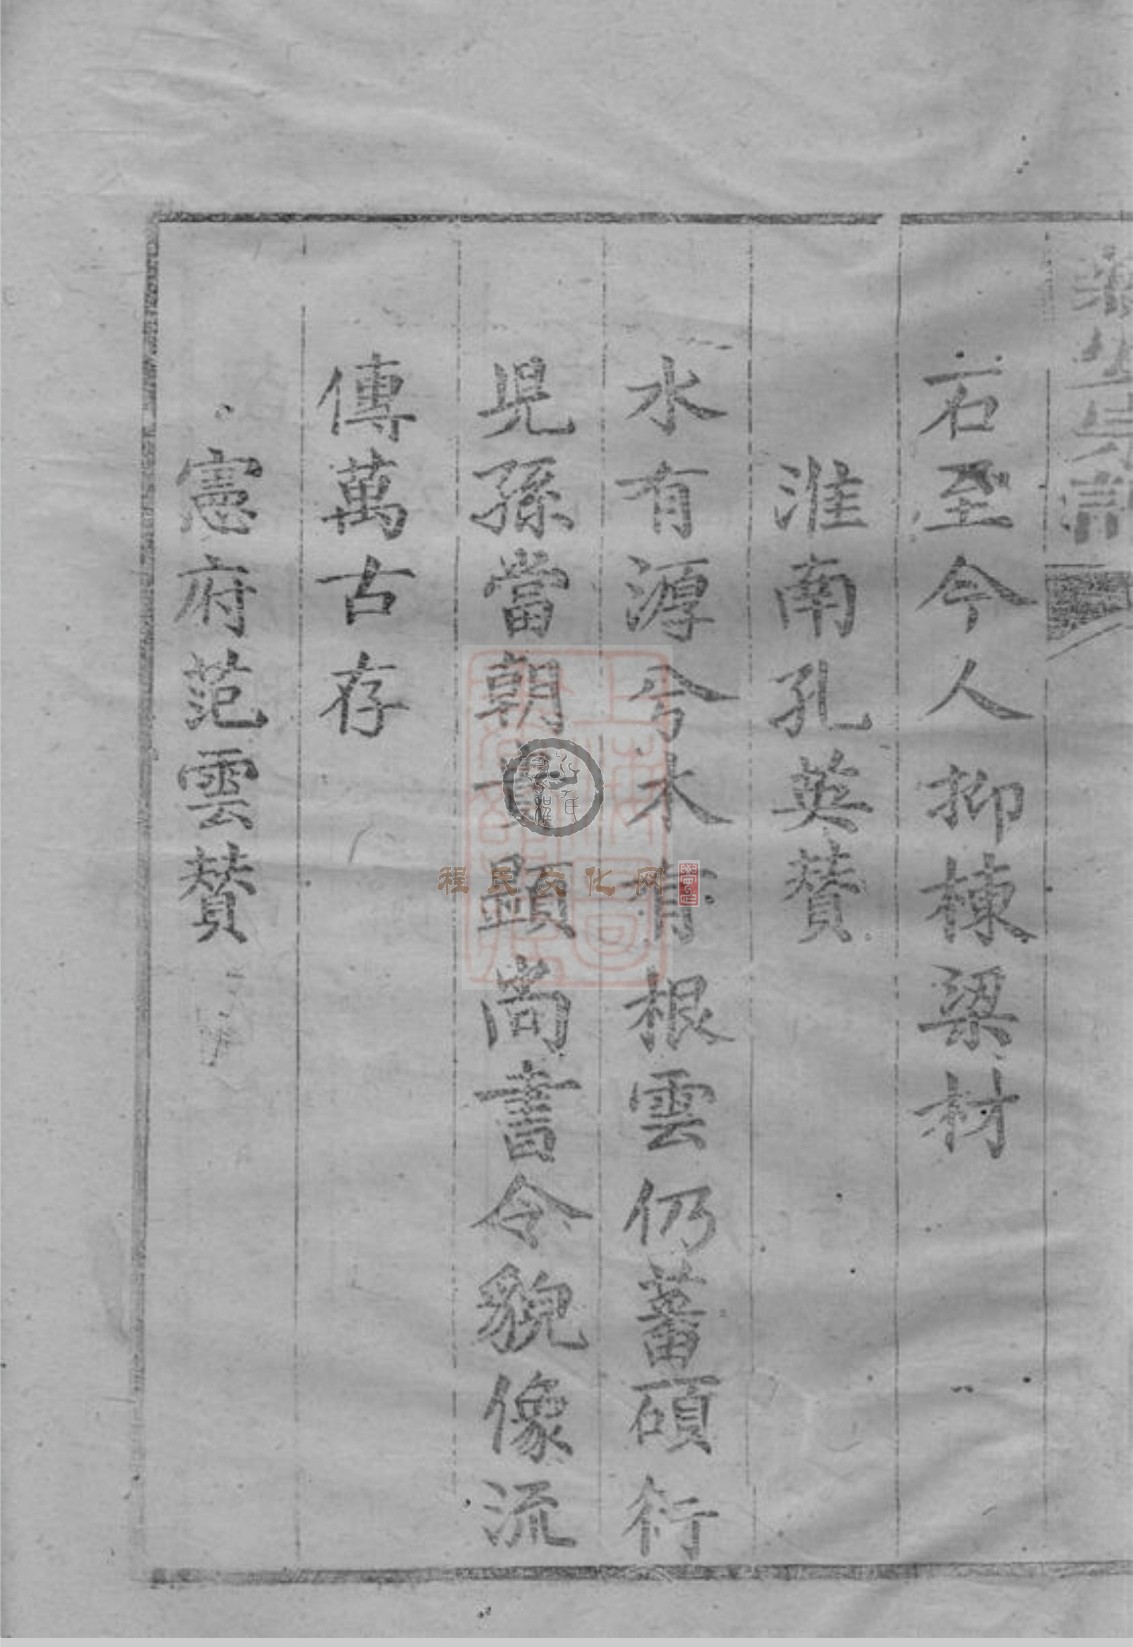 石至今人抑棟梁材
淮南孔英贊
水有源兮木有根雲仍蕃碩衍
児孫當朝貴顯尚書令貌像流
傳萬古存
憲府范雲贊
程氏文化网